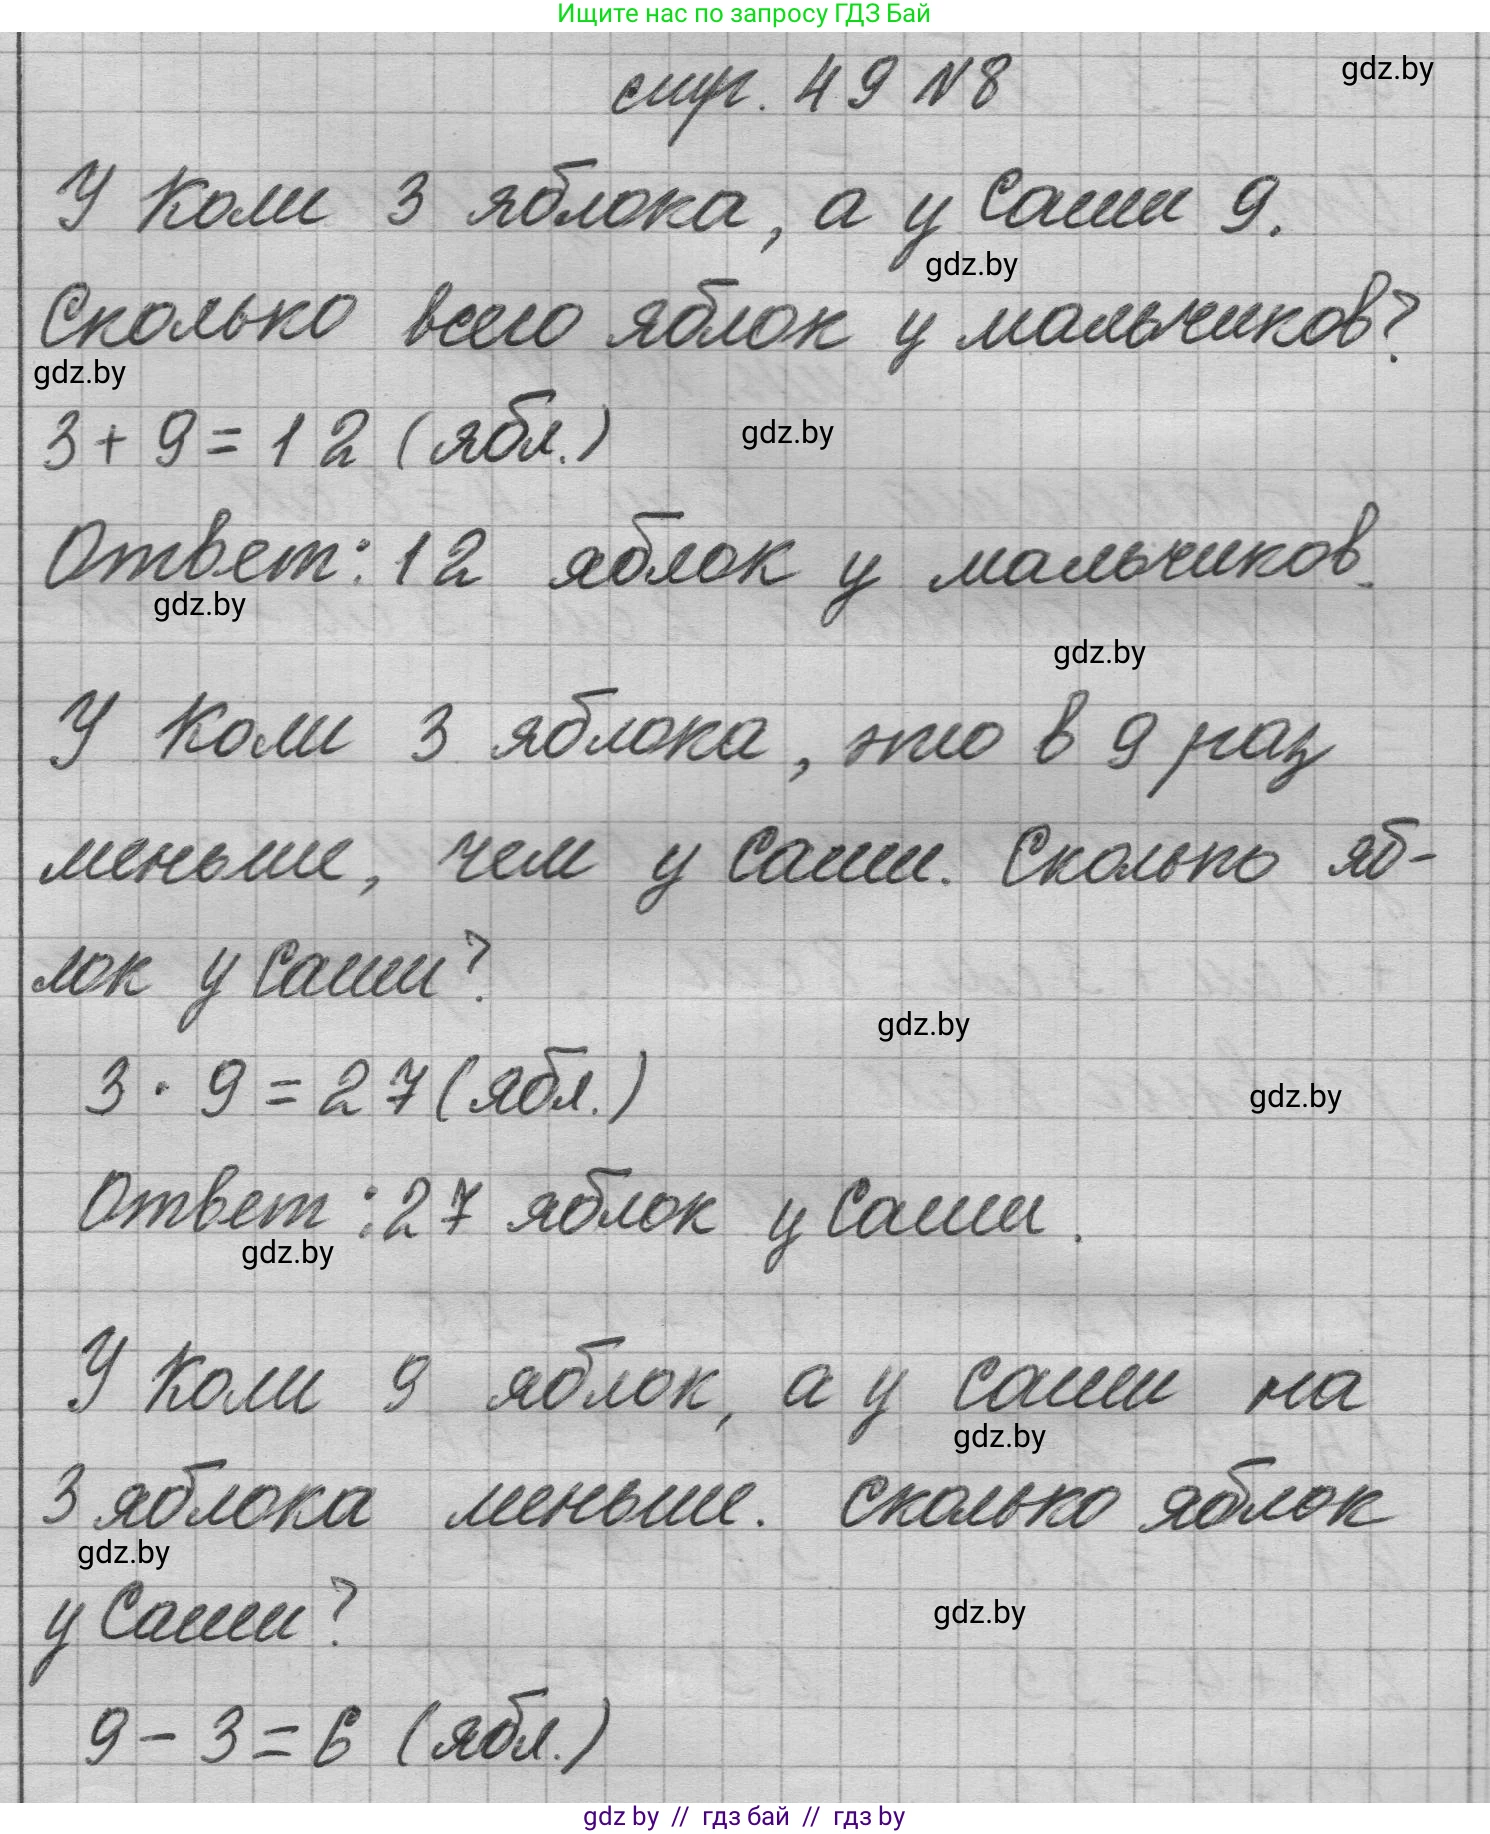 Ищите нас по запросу ГДЗ Бай
стр. 49 №8
gdz.by
У Коли 3 яблока, а у Саши 9.
gdz.by
Сколько всего яблок у мальчиков?
gdz.by
3+9=12 (ябл.)
gdz.by
Ответ: 12 яблок у мальчиков.
gdz.by
gdz.by
У Коли 3 яблока, это в 9 раз
меньше, чем у Саши. Сколько яб-
лок у Саши?
gdz.by
3·9=27(ябл.)
gdz.by
Ответ: 27 яблок у Саши.
gdz.by
У Коли 9 яблок, а у Саши на
gdz.by
3 яблока меньше. Сколько яблок
gdz.by
у Саши?
gdz.by
9-3=6 (ябл.)
gdz.by // гдз бай // гдз by